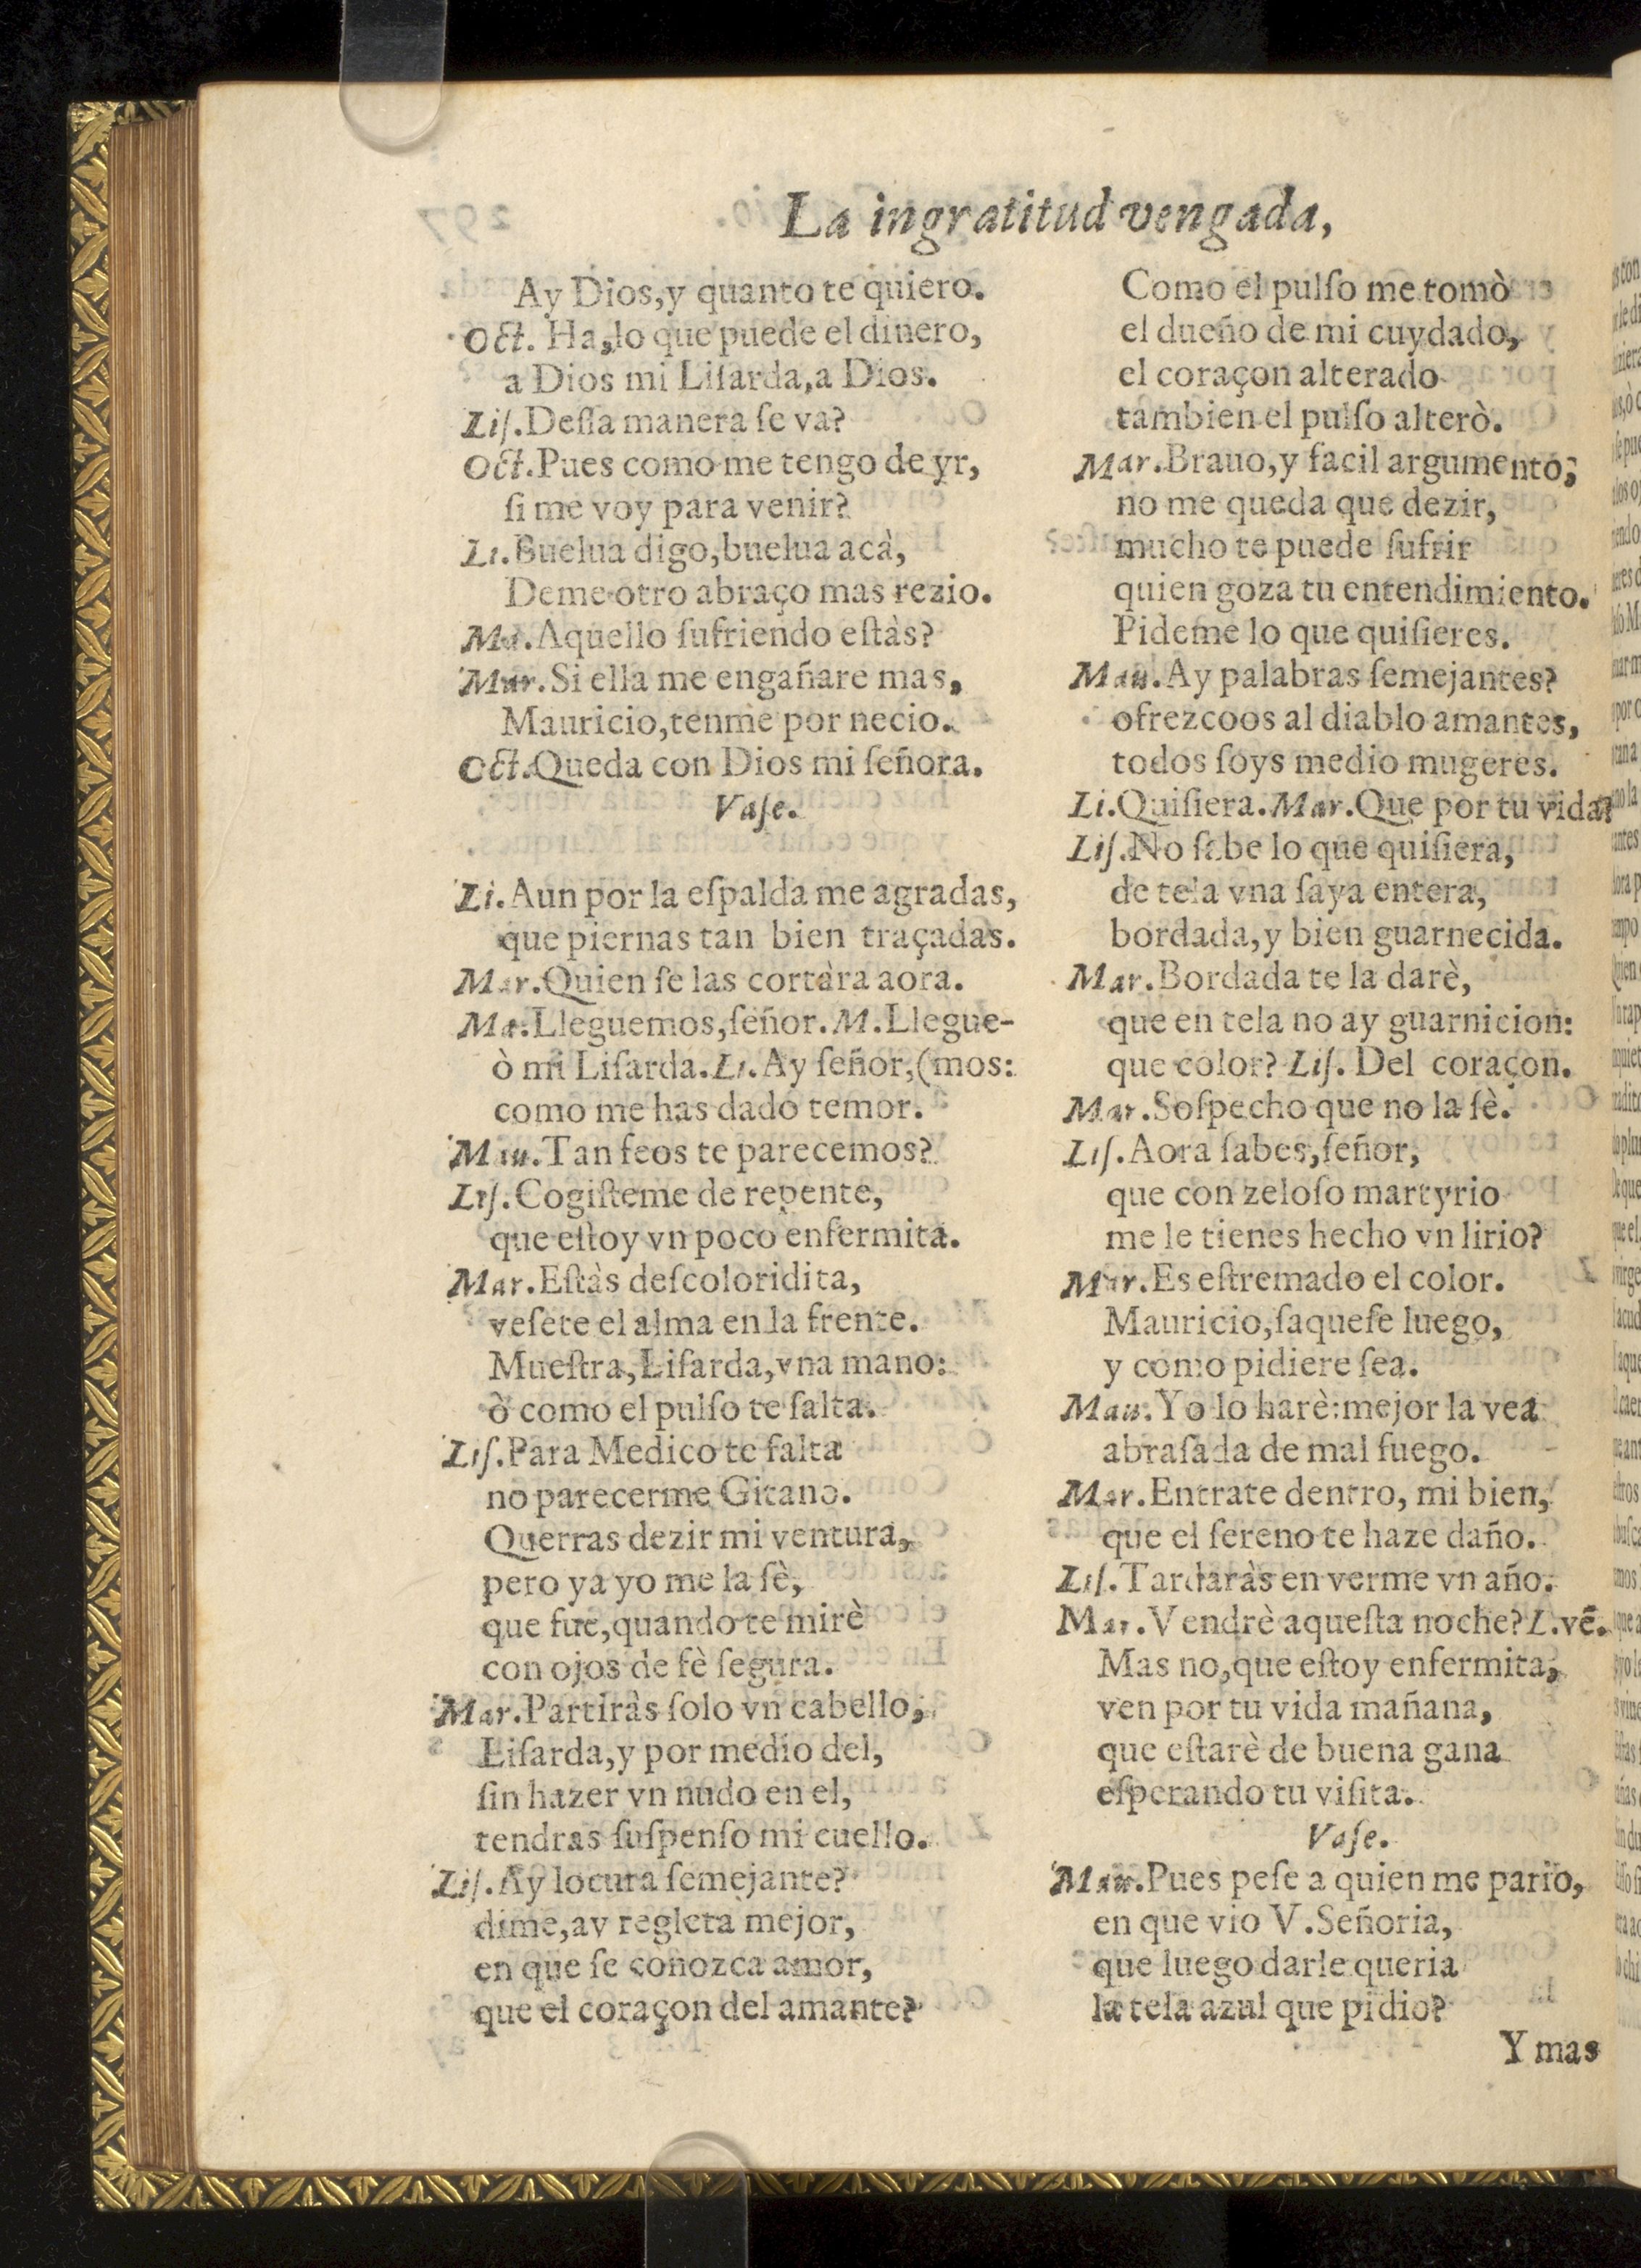 La ingratitud vengada,
Ay Dios,y quanto te quiero.
Oct. Ha,lo que puede el dinero,
a Dios mi Liſarda,a Dios.
Liſ.Deſſa manera ſe va?
Oct.Pues como me tengo de yr,
ſi me voy para venir?
Li.Buelua digo,buelua acà,
Deme otro abraço mas rezio.
Ma.Aquello ſufriendo eſtàs?
Mar.Si ella me engañare mas,
Mauricio,tenme por necio.
Oct.Queda con Dios mi ſeñora.
Vaſe.
Li.Aun por la eſpalda me agradas,
que piernas tan bien traçadas.
Mar.Quien ſe las cortàra aora.
Ma.Lleguemos,ſeñor.M.Llegue-
ò mi Liſarda.Li.Ay ſeñor,(mos:
como me has dado temor.
Mau.Tan feos te parecemos?
Liſ.Cogiſteme de repente,
que eſtoy vn poco enfermita.
Mar.Eſtàs deſcoloridita,
veſete el alma en la frente.
Mueſtra,Liſarda,vna mano:
ò como el pulſo te ſalta.
Liſ.Para Medico te falta
no parecerme Gitano.
Querras dezir mi ventura,
pero ya yo me la ſè,
que fue,quando te mirè
con ojos de fè ſegura.
Mar.Partiràs ſolo vn cabello,
Liſarda,y por medio del,
ſin hazer vn nudo en el,
tendras ſuſpenſo mi cuello.
Liſ.Ay locura ſemejante?
dime,ay regleta mejor,
en que ſe conozca amor,
que el coraçon del amante?
Como el pulſo me tomò
el dueño de mi cuydado,
el coraçon alterado
tambien el pulſo alterò.
Mar.Brauo,y facil argumento;
no me queda que dezir,
mucho te puede ſufrir
quien goza tu entendimiento.
Pideme lo que quiſieres.
Mau.Ay palabras ſemejantes?
ofrezcoos al diablo amantes,
todos ſoys medio mugeres.
Li.Quiſiera.Mar.Que por tu vida?
Liſ.No ſabe lo que quiſiera,
de tela vna ſaya entera,
bordada,y bien guarnecida.
Mar.Bordada te la darè,
que en tela no ay guarnicion:
que color? Liſ. Del coraçon.
Mar.Soſpecho que no la ſè.
Liſ.Aora ſabes,ſeñor,
que con zeloſo martyrio
me le tienes hecho vn lirio?
Mar.Es eſtremado el color.
Mauricio,ſaqueſe luego,
y como pidiere ſea.
Mau.Yo lo harè:mejor la vea
abraſada de mal fuego.
Mar.Entrate dentro, mi bien,
que el ſereno te haze daño.
Liſ.Tardaràs en verme vn año.
Mar.Vendrè aqueſta noche?L.vē.
Mas no,que eſtoy enfermita,
ven por tu vida mañana,
que eſtarè de buena gana
eſperando tu viſita.
Vaſe.
Mau.Pues peſe a quien me pario,
en que vio V.Señoria,
que luego darle queria
la tela azul que pidio?
Y mas